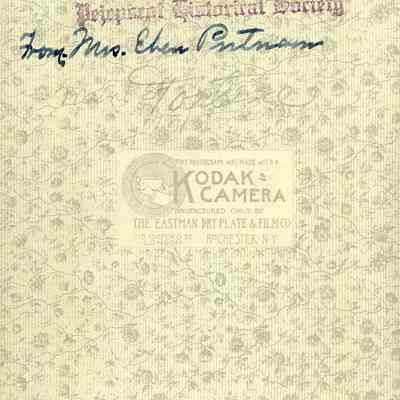 Pejepscot Historical Society
From Mrs. Eben Putnam
THIS PHOTOGRAPH WAS MADE WITH A
KODAK
CAMERA
MANUFACTURED ONLY BY
THE EASTMAN DRY PLATE & FILM CO
ROCHESTER N.Y.